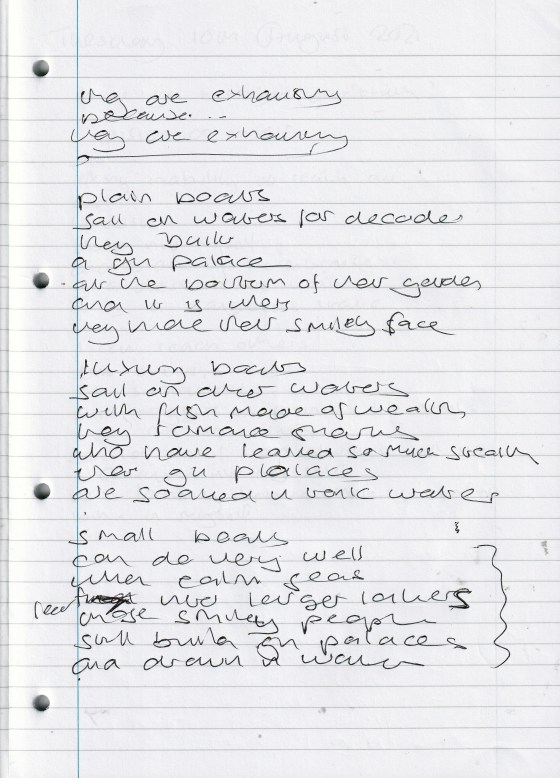 they are exhausting
because...
they are exhausting
plain boats
sail on waters for decades
they built
a gin palace
at the bottom of their garden
and it is there
they hide their smiley face
luxury boats
sail on other waters
with fish made of wealth
they romance sharks
who have learned so much stealth
their gin plalaces
are soaked in tonic water
small boats
can do very well
when calm seas
feed into larger lakers
those smiley people
still build gin palaces
and drown in water